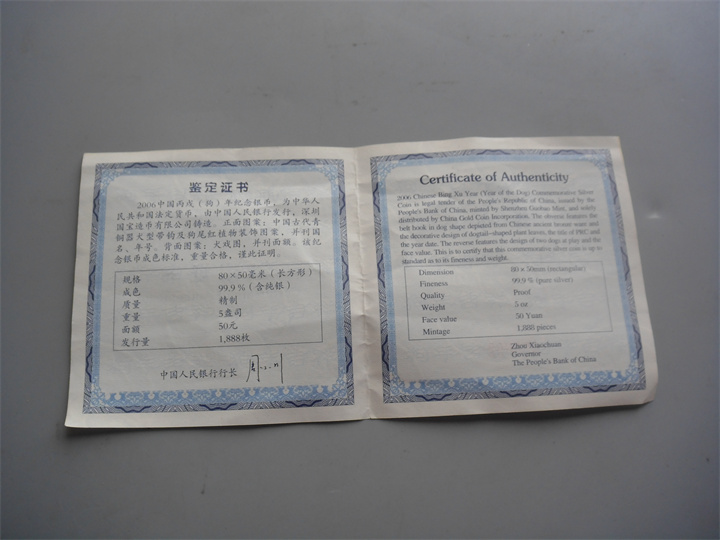 鉴定证书
2006中国丙戌(狗)年纪念银币，为中华人
民共和国法定货币，由中国人民银行发行，深圳
国宝造币有限公司铸造。正面图案：中国古代青
铜器犬型带钩及狗尾红植物装饰图案，并刊国
名、年号。背面图案：犬戏图，并刊面额。该纪
念银币成色标准，重量合格，谨此证明。
规格 80×50毫米(长方形)
成色 99.9%(含纯银)
质量 精制
重量 5盎司
面额 50元
发行量 1,888枚
中国人民银行行长
Certificate of Authenticity
2006 Chinese Bing Xu Year (Year of the Dog) Commemorative Silver
Coin is legal tender of the People's Republic of China, issued by the
People's Bank of China, minted by Shenzhen Guobao Mint, and solely
distributed by China Gold Coin Incorporation. The obverse features the
belt hook in dog shape depicted from Chinese ancient bronze ware and
the decorative design of dogtail-shaped plant leaves, the title of PRC and
the year date. The reverse features the design of two dogs at play and the
face value. This is to certify that this commemorative silver coin is up to
standard as to its fineness and weight.
Dimension 80×50mm (rectangular)
Fineness 99.9 % (pure silver)
Quality Proof
Weight 5 oz
Face value 50 Yuan
Mintage 1,888 pieces
Zhou Xiaochuan
Governor
The People's Bank of China